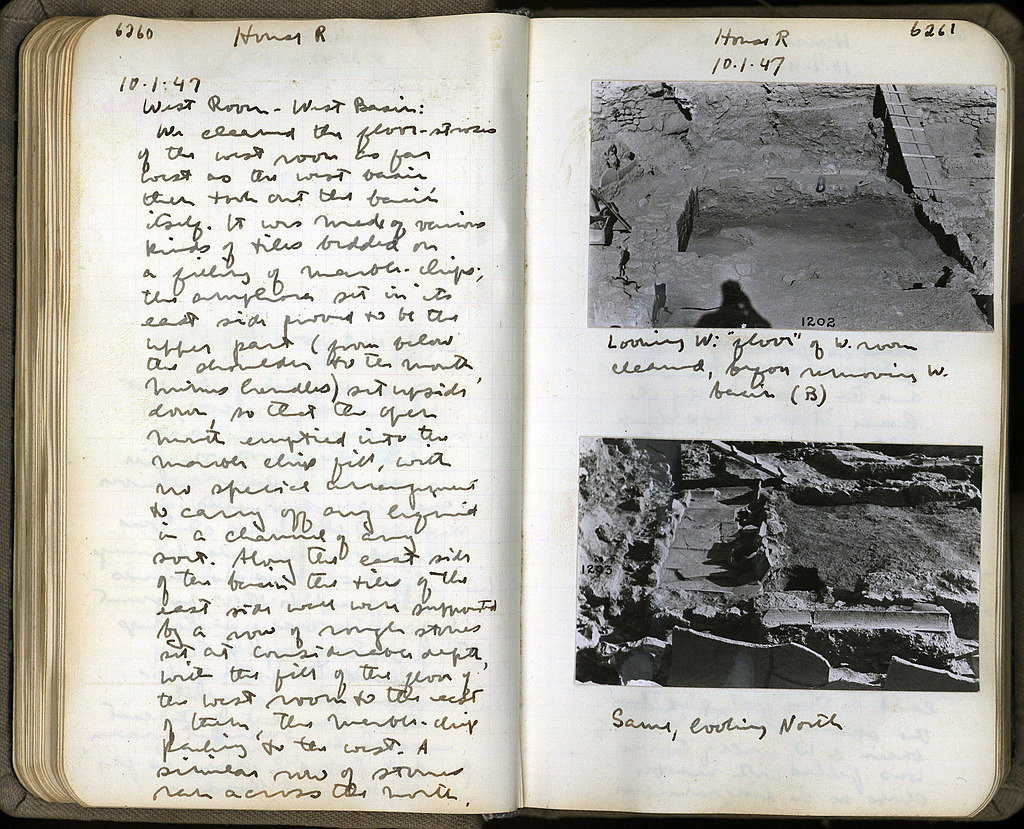 6260
House R
10.1.47
West Room - West Basin:
We cleaned the floor-stroses
of the west room as far
west as the west basin
then took out the basin
itself. It was made of various
kinds of tiles bedded on
a filling of marble-chips;
the amphora set in its
east side proved to be the
upper part (from below
the shoulder to the mouth,
minus handles) set upside
down, so that the open
mouth emptied into the
marble chip fill, with
no special arrangement
to carry off any liquid
in a channel of any
sort. Along the east side
of the basin the tiles of the
east side wall were supported
by a row of rough stones
set at considerable depth,
with the fill of the floor of
the west room to the east
of them, the marble-chip
packing to the west. A
similar row of stones
ran across the north,
6261
House R
10.1.47
1202
Looking W: "floor" of W. room
cleaned, before removing W.
basin (B)
1203
Same, looking North